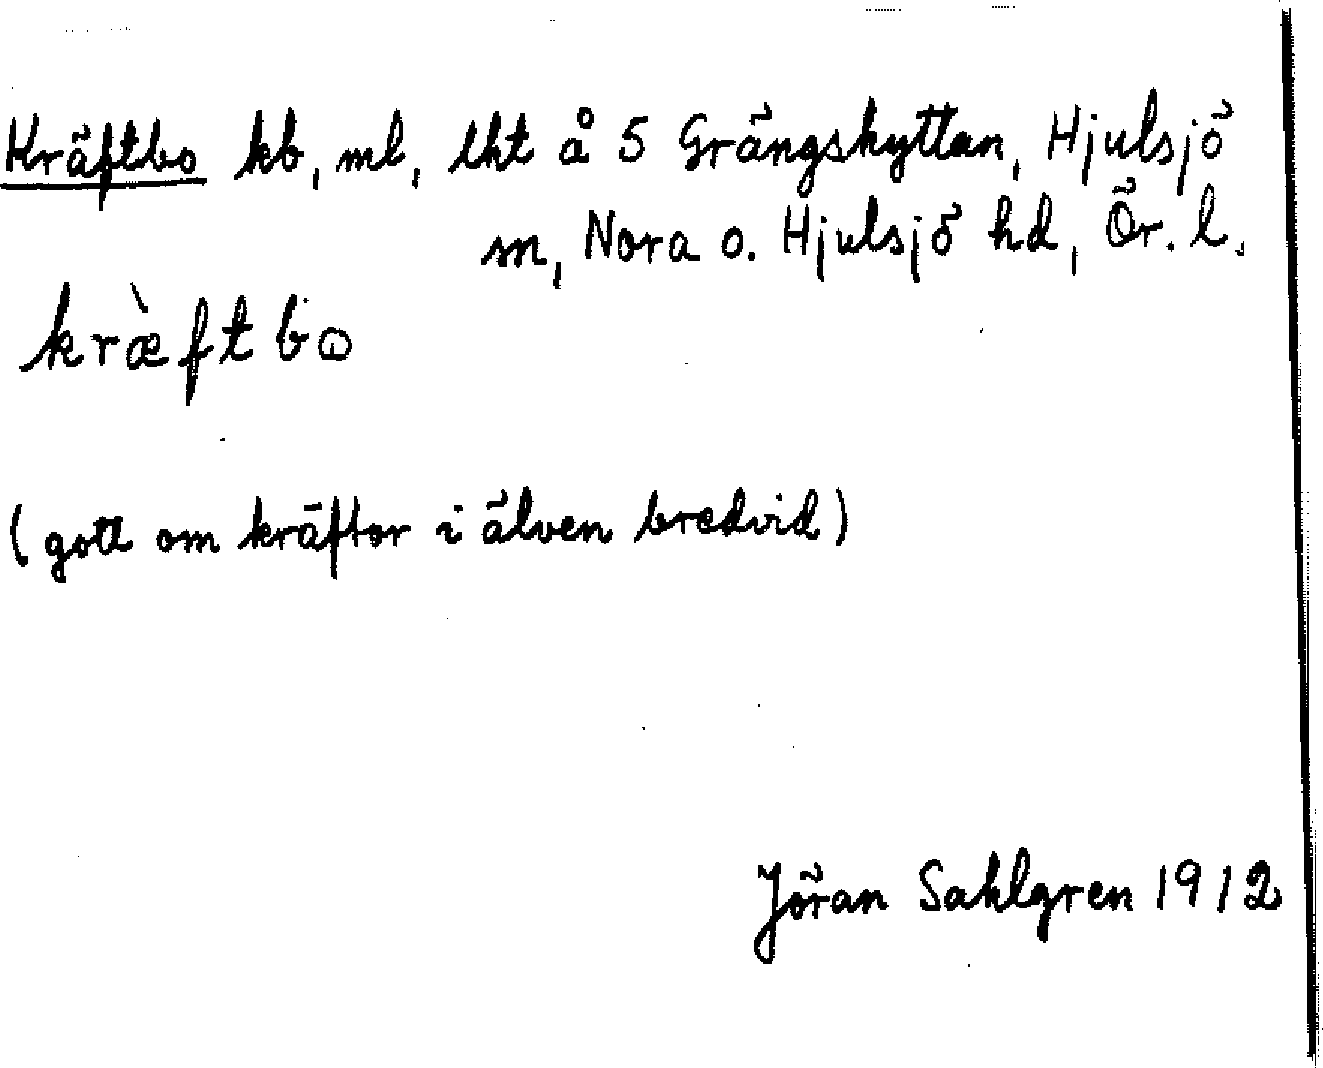 Kräftbo kb, ml, lht å 5 Grängshyttan, Hjulsjö
sn, Nora o. Hjulsjö hd, Ör. l.
kræ̀ftbo
(gott om kräftor i älven bredvid)
Jöran Sahlgren 1912